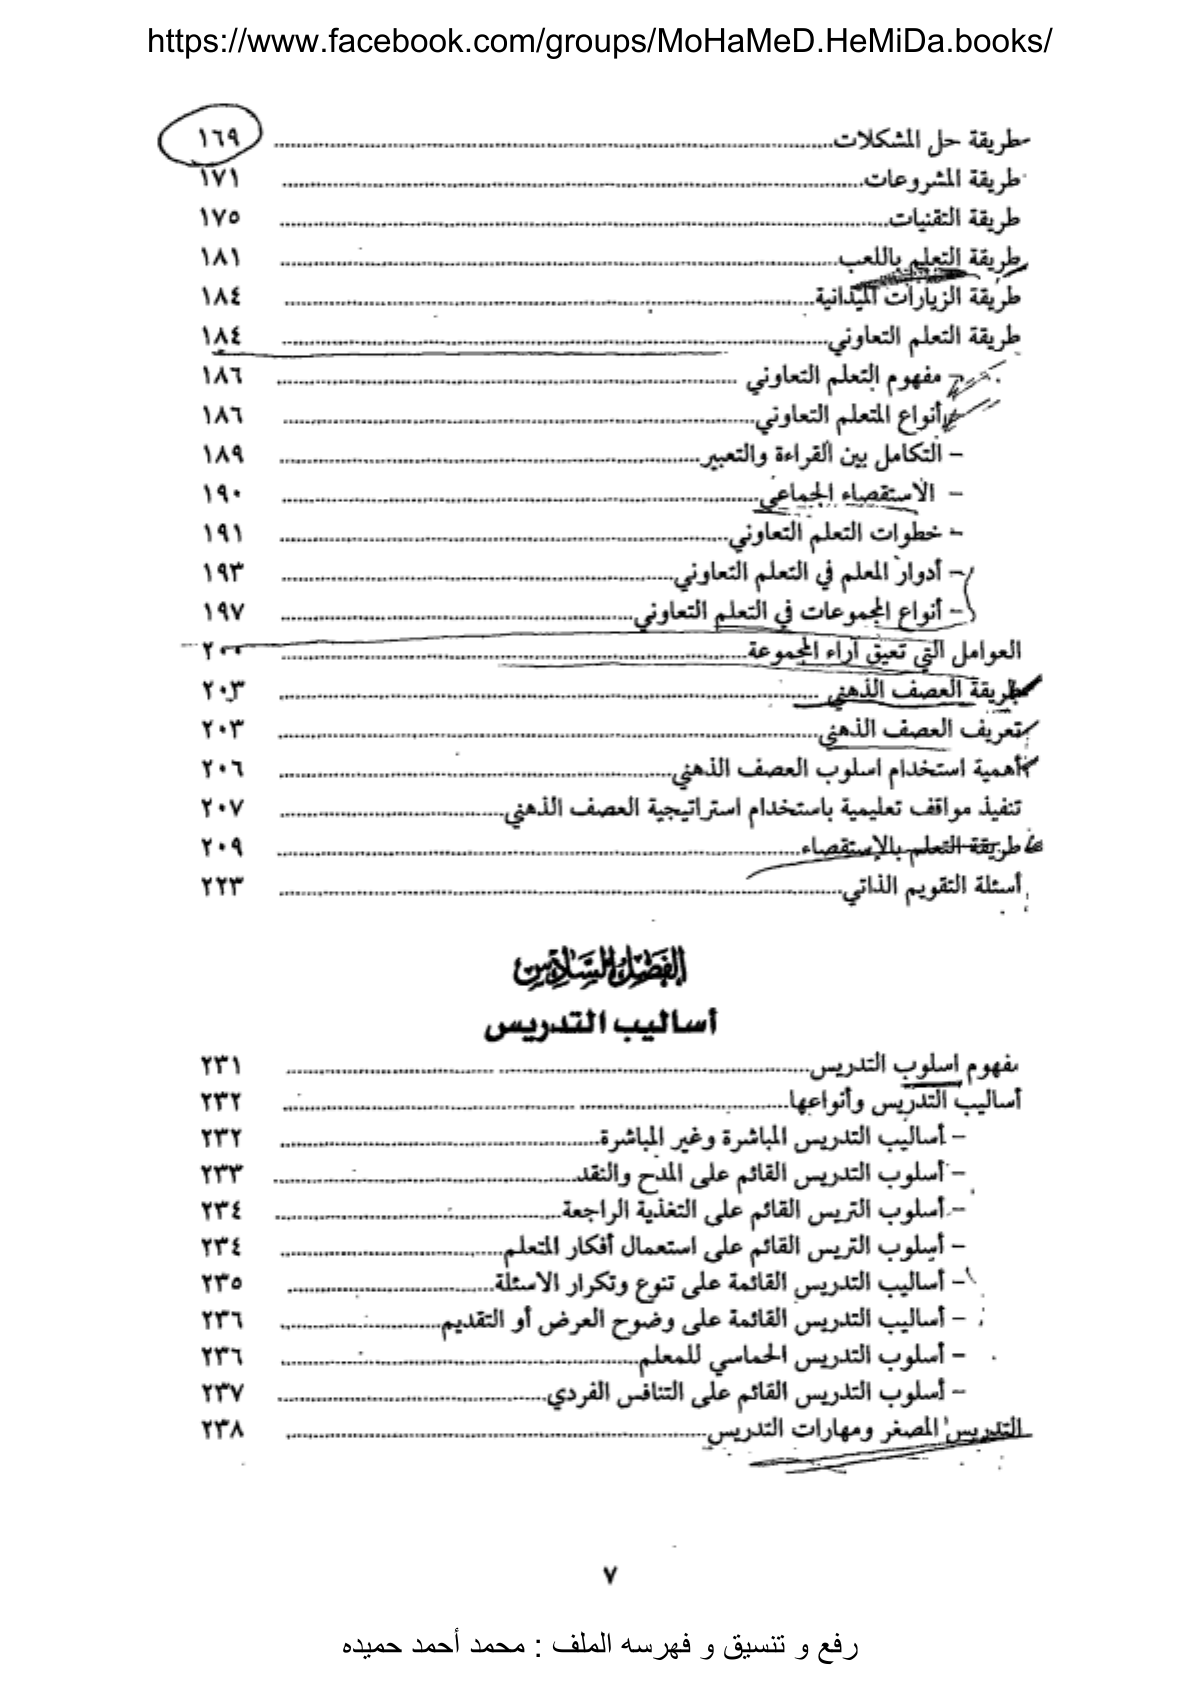 https://www.facebook.com/groups/MoHaMeD.HeMiDa.books/
طريقة حل المشكلات ١٦٩
طريقة المشروعات ١٧١
طريقة التقنيات ١٧٥
طريقة التعلم باللعب ١٨١
طريقة الزيارات الميدانية ١٨٤
طريقة التعلم التعاوني ١٨٤
– مفهوم التعلم التعاوني ١٨٦
– أنواع المتعلم التعاوني ١٨٦
– التكامل بين القراءة والتعبير ١٨٩
– الاستقصاء الجماعي ١٩٠
– خطوات التعلم التعاوني ١٩١
– أدوار المعلم في التعلم التعاوني ١٩٣
– أنواع المجموعات في التعلم التعاوني ١٩٧
العوامل التي تعيق آراء المجموعة ٢٠٠
طريقة العصف الذهني ٢٠٣
تعريف العصف الذهني ٢٠٣
أهمية استخدام اسلوب العصف الذهني ٢٠٦
تنفيذ مواقف تعليمية باستخدام استراتيجية العصف الذهني ٢٠٧
طريقة التعلم بالإستقصاء ٢٠٩
أسئلة التقويم الذاتي ٢٢٣
الفصل السادس
أساليب التدريس
مفهوم اسلوب التدريس ٢٣١
أساليب التدريس وأنواعها ٢٣٢
– أساليب التدريس المباشرة وغير المباشرة ٢٣٢
– أسلوب التدريس القائم على المدح والنقد ٢٣٣
– أسلوب التريس القائم على التغذية الراجعة ٢٣٤
– أسلوب التريس القائم على استعمال أفكار المتعلم ٢٣٤
– أساليب التدريس القائمة على تنوع وتكرار الاسئلة ٢٣٥
– أساليب التدريس القائمة على وضوح العرض أو التقديم ٢٣٦
– أسلوب التدريس الحماسي للمعلم ٢٣٦
– أسلوب التدريس القائم على التنافس الفردي ٢٣٧
التدريس المصغر ومهارات التدريس ٢٣٨
٧
رفع و تنسيق و فهرسه الملف : محمد أحمد حميده